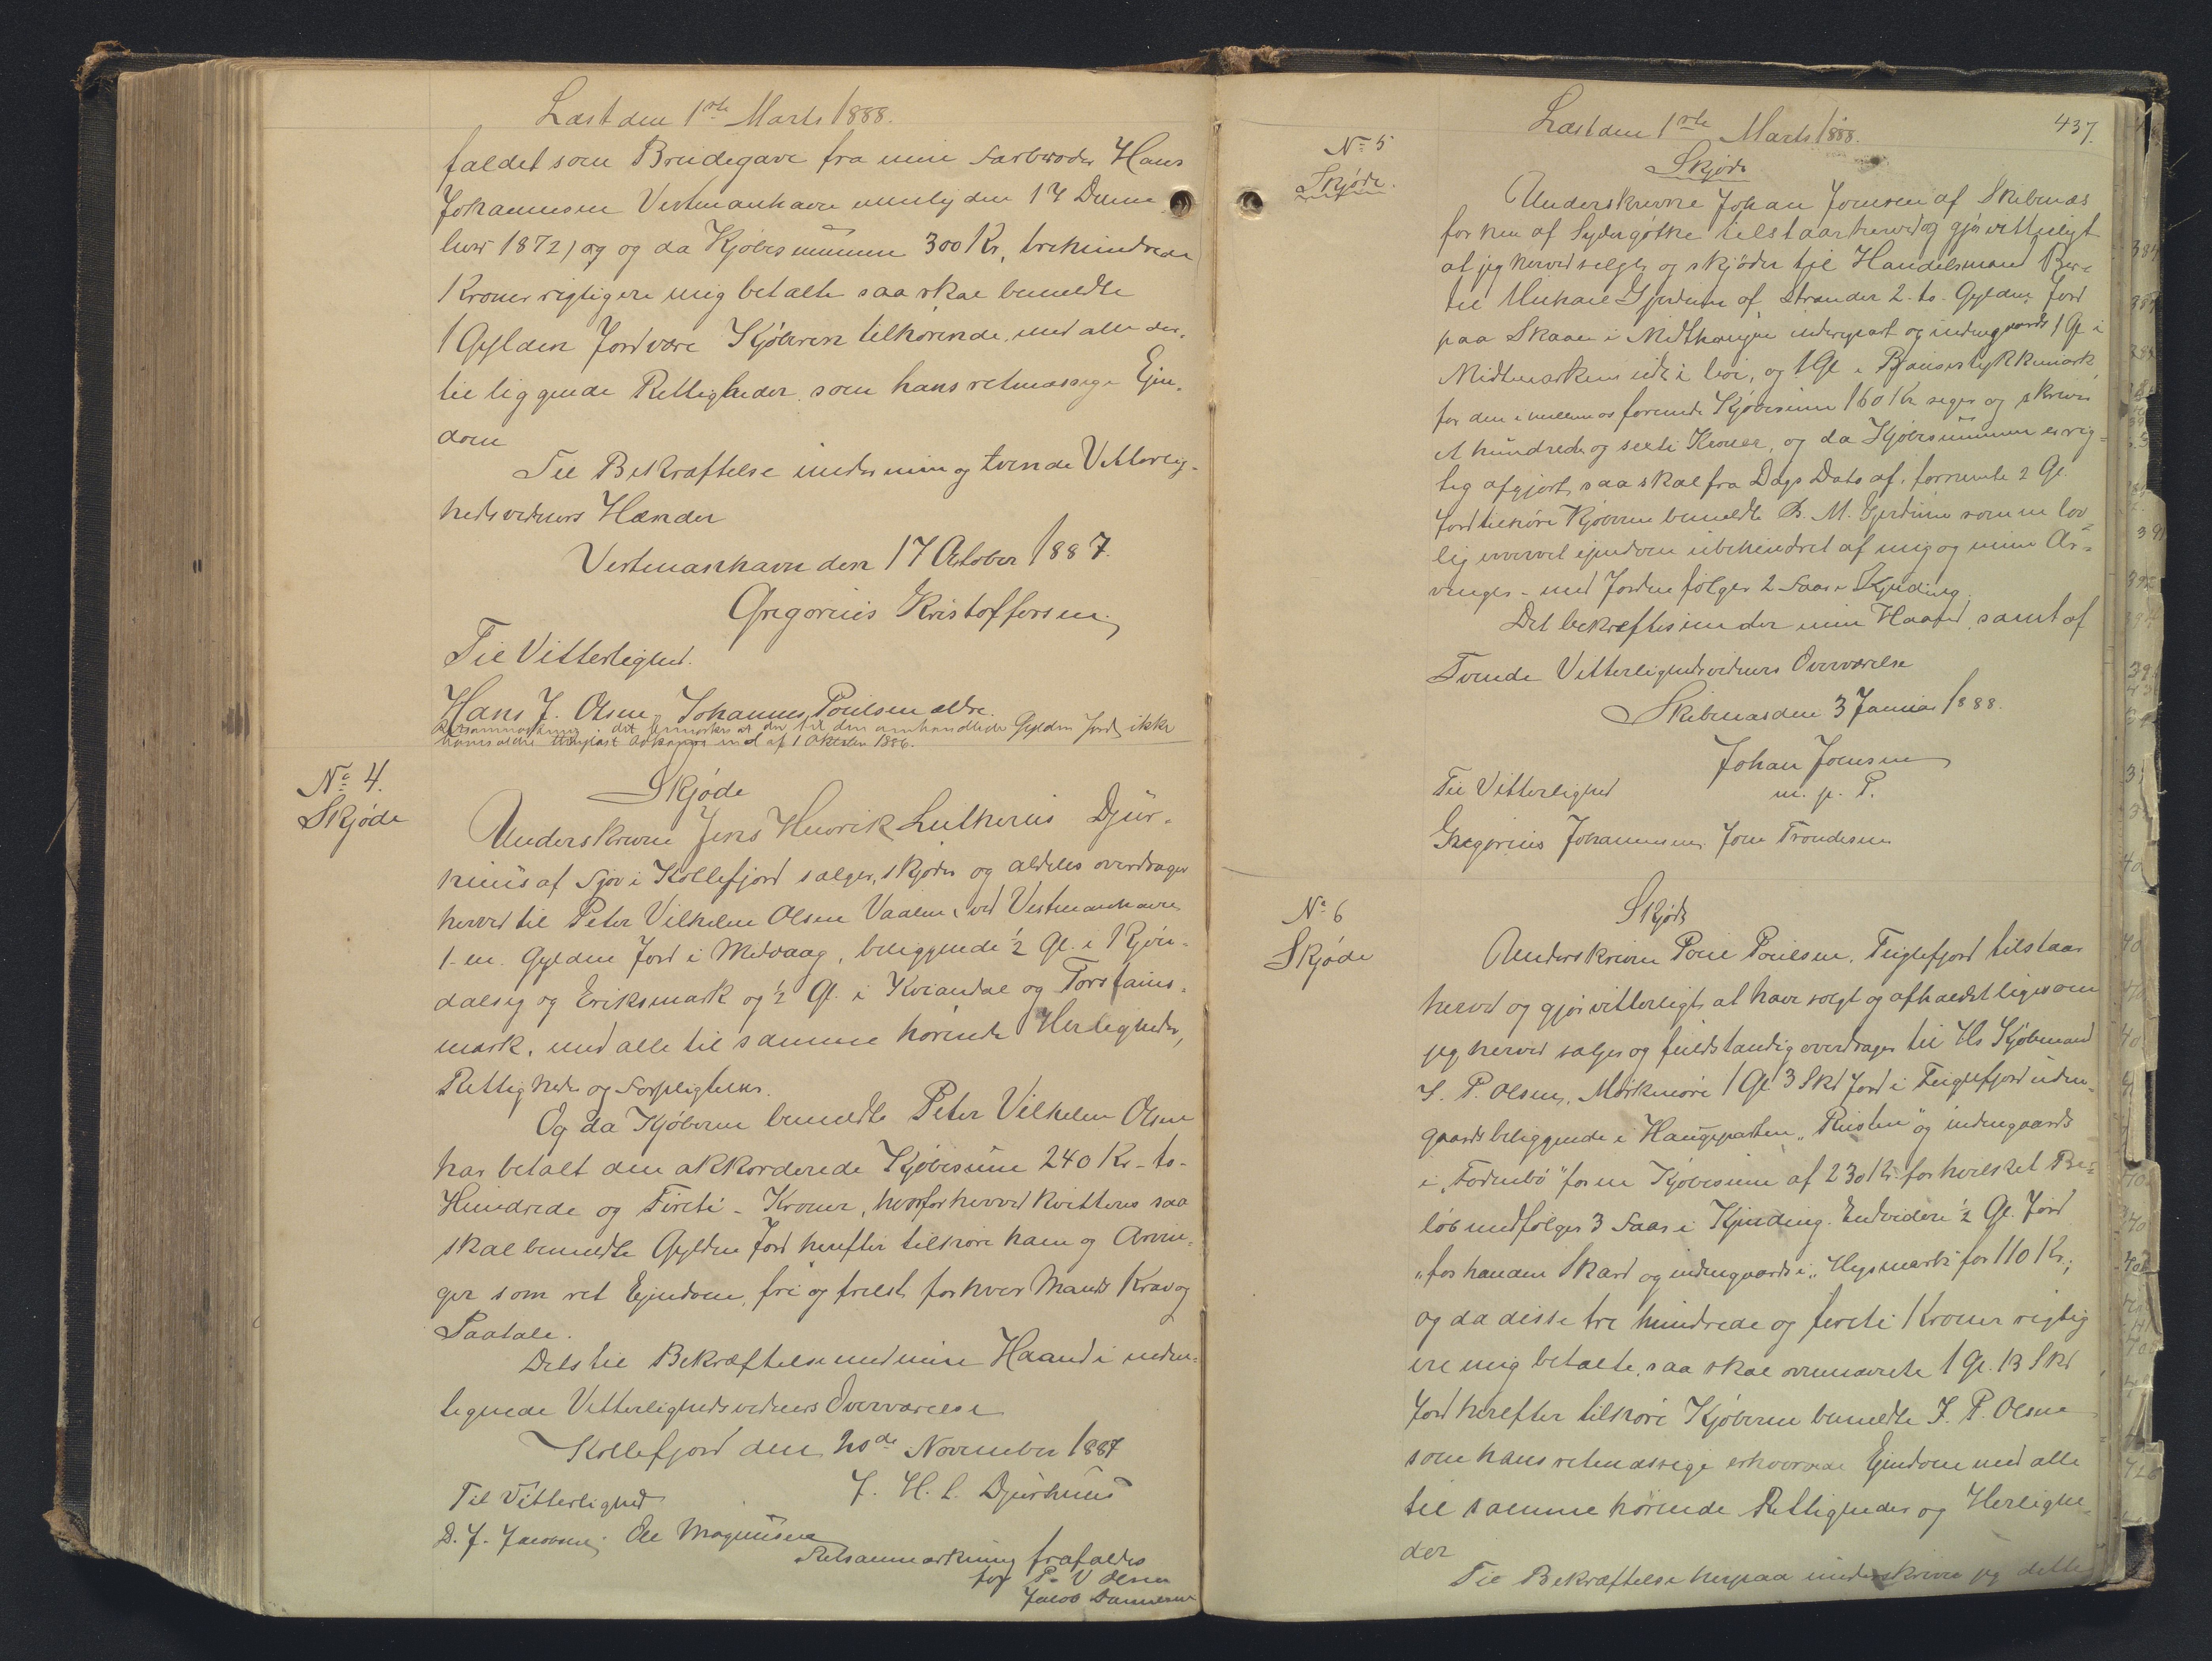 Læst den 1ste Marts 1888.
faldet som Brudegave fra min Farbroder Hans
Johannesen Vestmanhavn nemlig den 17 Decem
ber 1872) og og da Kjøbesummen 300 Kr, trehundrede
Kroner rigtig ere mig betalte saa skal bemeldte
1 Gylden Jord være Kjøberen tilhørende med alle der-
til liggende Rettigheder som hans retmæssige Ejen-
dom
Til Bekræftelse under min og tvende Vitterlig-
hedsvidners Hænder
Vestmanhavn den 17 October 1887.
Gregorius Kristoffersen
Til Vitterlighed.
Hans J. Olsen, Johannes Poulsen ældre.
Retsanmærkning: det bemærkes at den til den omhandlede Gylden Jord ikke
af 1 Oktober 1886.
No 4.
Skjøde
Skjøde
Underskrevne Jens Henrik Lutherus Djur-
huus af Sjov i Kollefjord sælger, skjøder og aldeles overdrager
herved til Peter Vilhelm Olsen Vaalen ved Vestmanhavn
1 - en. Gylden Jord i Midvaag, beliggende ½ Gl. i Kjøn-
dalsig og Eriksmark og ½ Gl. i Kviandal og Torsfains-
mark, med alle til samme hørende Herligheder,
Rettigheder og Forpligtelser.
Og da Kjøberen bemeldte Peter Vilhelm Olsen
har betalt den akkorderede Kjøbesum 240 Kr - to-
Hundrede og Fireti - Kroner, hvorfor herved kvitteres saa
skal bemeldte Gylden Jord herefter tilhøre ham og Arvin-
ger som ret Ejendom, fri og frelst for hver Mands Krav og
Paatale.
Dets til Bekræftelse med min Haand i neden-
tegnede Vitterlighedsvidners Overværelse
Kollefjord den 20de November 1887
Til Vitterlighed
J. H. L. Djurhuus
D. J. Jacobsen, Ole Magnussen
Retsanmærkning frafaldes
for P. V Olsen
Jacob Danielsen
437.
Læst den 1ste Marts 1888.
No 5
Skjøde.
Skjøde
Underskrevne Johan Joensen af Skibenæs
forhen af Sydrugøthe tilstaar herved og gjør vitterligt
at jeg herved sælger og skjøder til Handelsmand Ber-
til Michael Gjerdum af Strander 2 - to - Gylden Jord
paa Skaale i Midthaugen udenpart og indengaards 1 Gl i
Midtmarken ude i løvi, og 1 Gl i stykkemark
for den imellem os forenede Kjøbesum 160 Kr siger og skriver
et hundrede og sexti Kroner, og da Kjøbesummen er rig-
tig afgjort, saa skal fra Dags Dato af forrnævnte 2 Gl.
Jord tilhøre Kjøberen bemeldte B. M. Gjerdum som en lov
lig erhvervet ejendom ubehindret af mig og mine Ar-
vinger - med Jorden følger 2 Faar i Skjnding.
Det bekræftes under min Haand samt af
Tvende Vitterlighedsvidners Overværelse
Skibenæs den 3 Januar 1888.
Johan Joensen
Til Vitterlighed
m. p. P.
Gregorius Johannesen, Joen Trondesen
No 6
Skjøde
Skjøde
Underskrevne Poul Poulsen, Fuglefjord tilstaar
herved og gjør vitterligt, at have solgt og afhændet ligesom
jeg herved sælger og fuldstændig overdrager til Hr Kjøbmand
J. P. Olsen, Mørkenøre 1 Gl 3 Skd Jord i Fuglefjord uden-
gaards beliggende i Haugeparten „Rusten" og indengaards
i „Tødnebø" for en Kjøbesum af 230 Kr. for hvilket Be-
løb medfølger 3 Faar i Kjnding. Endvidere ½ Gl. Jord
„forhanden Skard og indengaards i „Hegsmark" for 110 Kr.;
og da disse tre hundrede og fireti Kroner rigtig
ere mig betalte, saa skal ovennævnte 1 Gl. 13 Skd
Jord herefter tilhøre Kjøberen bemeldte J. P. Olsen
som hans retmæssige erhvervede Ejendom med alle
til samme hørende Rettigheder og Herlighe-
der
Til Bekræftelse herpaa underskriver jeg dette